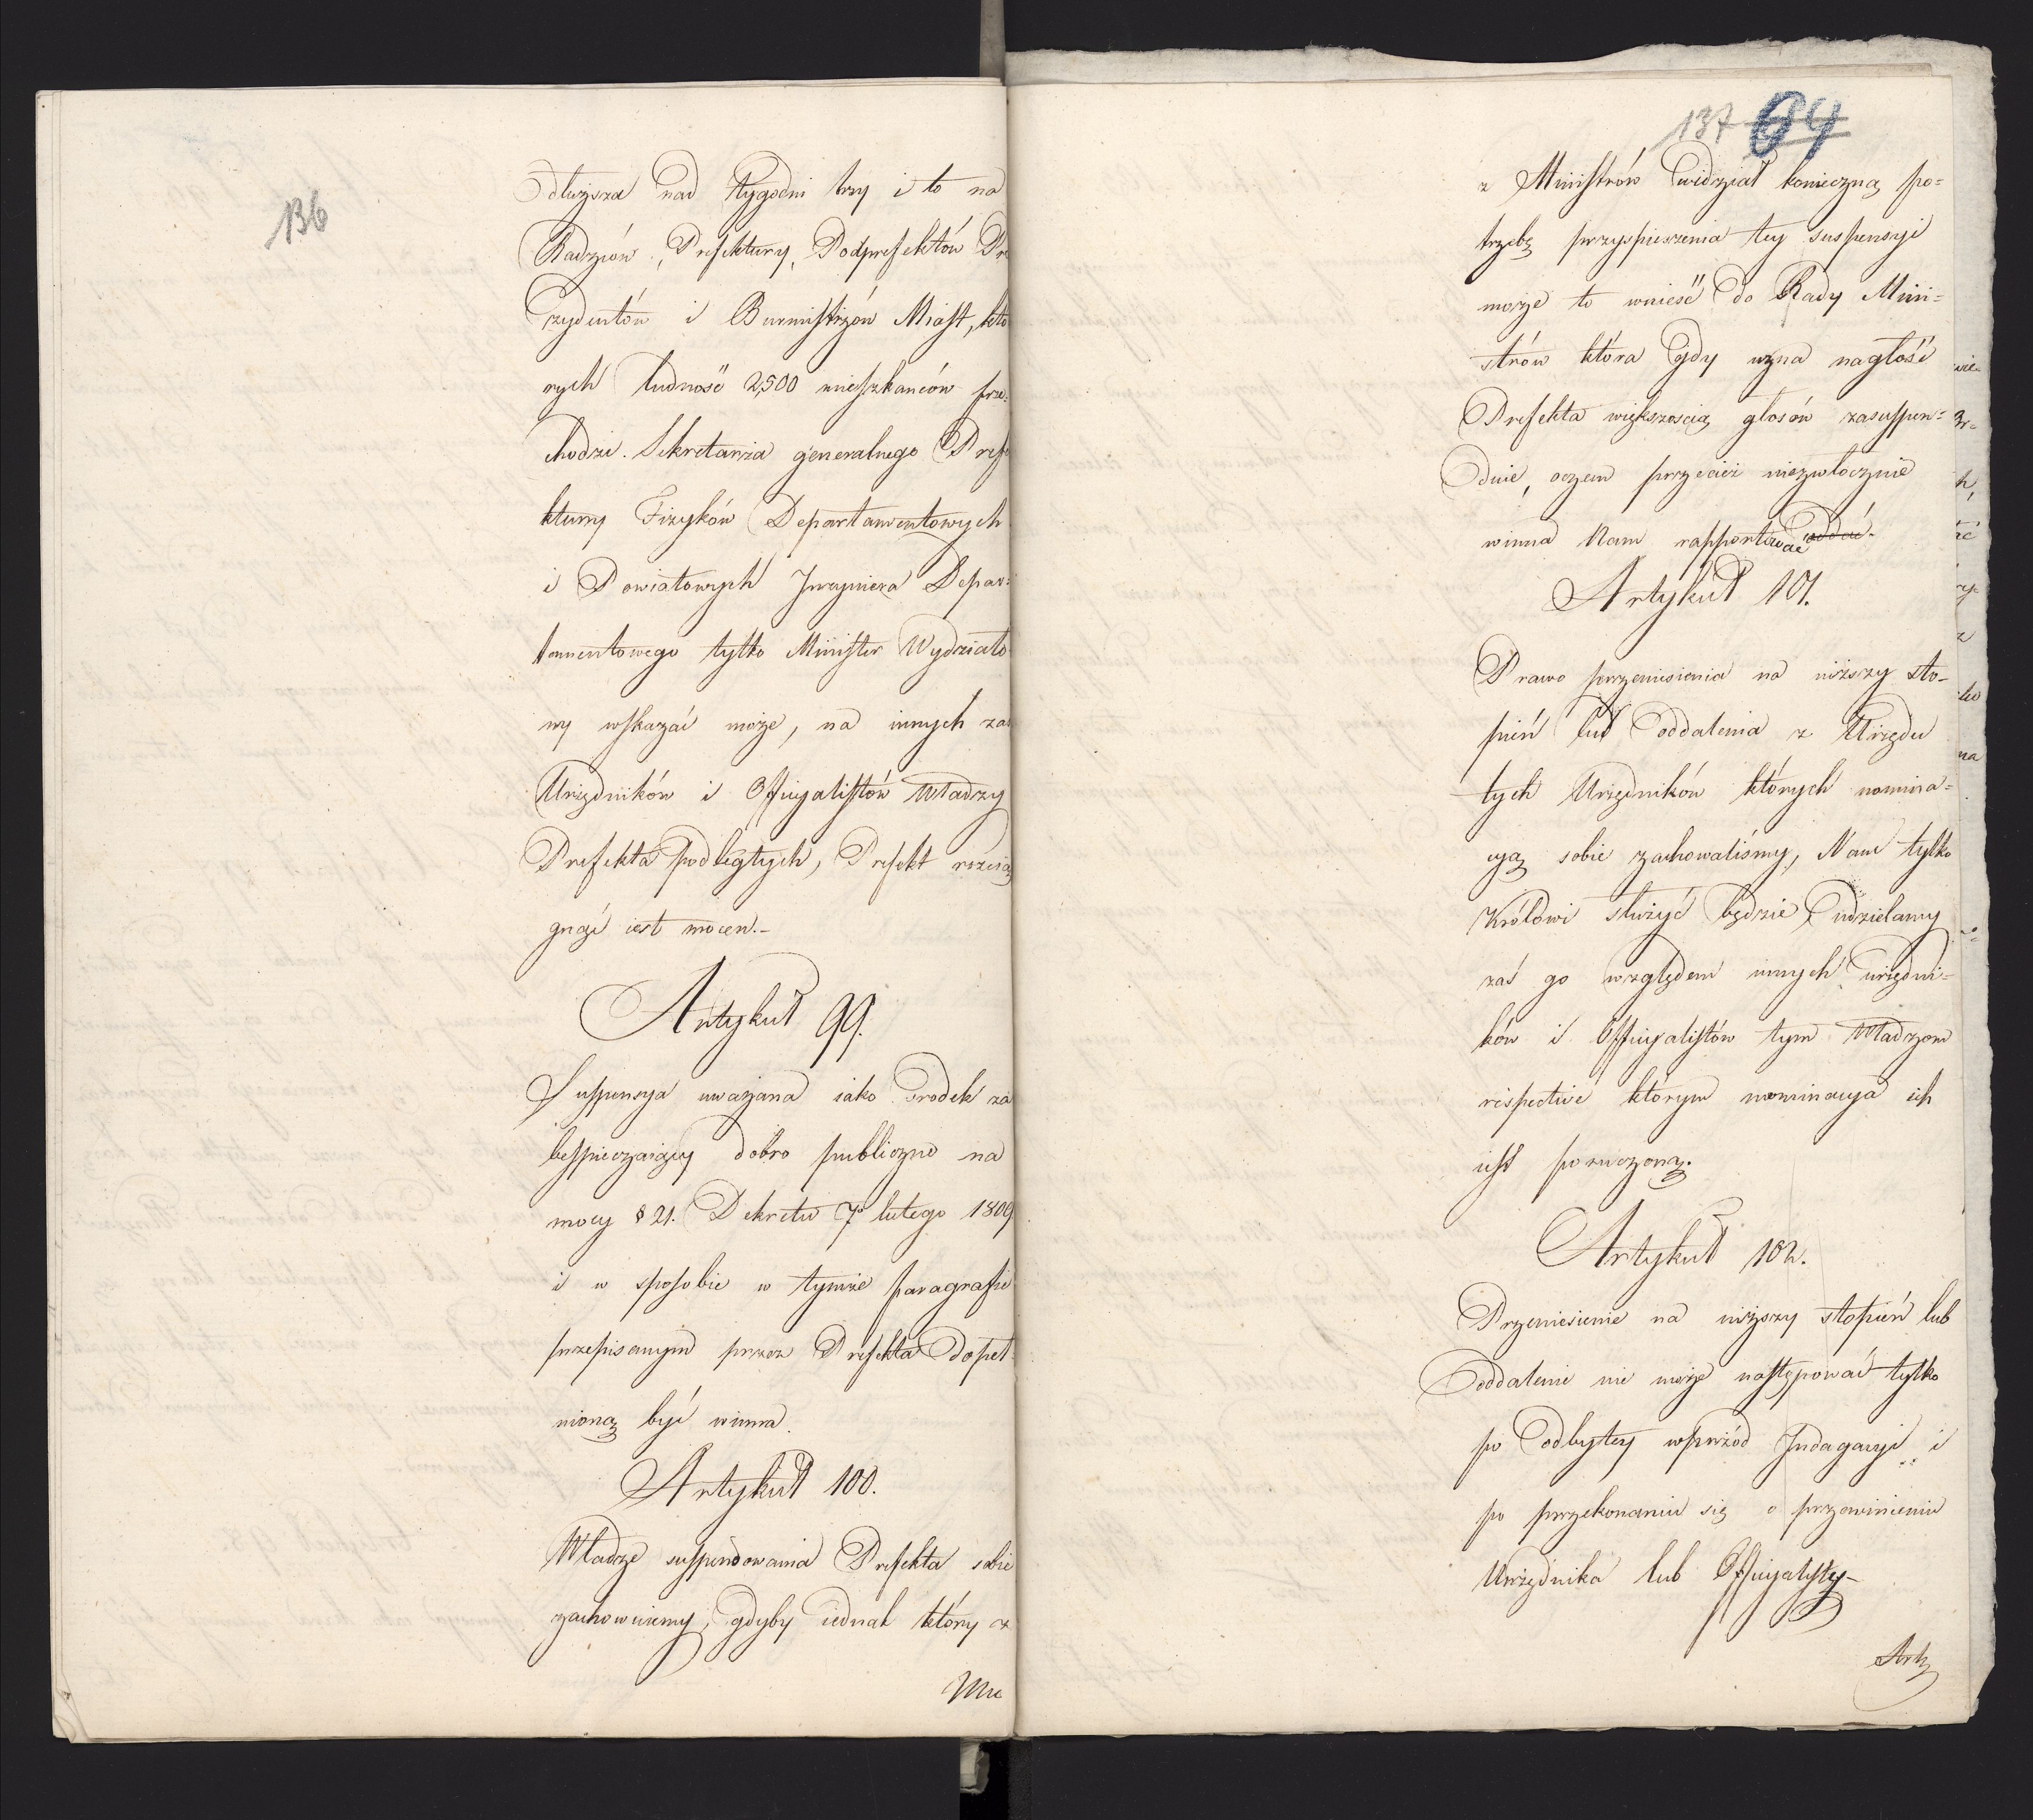 136
dłuższa nad tygodni trzy i to na
Radzców, Prefektury, Podprefektów Pre
zydentów i Burmistrzów Miast, któ
rych ludność 2500 mieszkańców prze-
chodzi. Sekretarza generalnego Prefe
ktury Fizyków Departamentowych
i Powiatowych Inzyniera Depar-
tamentowego tylko Minister Wydziało
wy wskazać może, na innych zaś
Urzędników i Officyalistów Władzy
Prefekta podległych, Prefekt rozcią
gnąć iest mocen.-
Artykuł 99.
Suspensya uważana iako środek za
bespieczaiący dobro publiczne na
mocy § 21. Dekretu 7º lutego 1809
i w sposobie w tymże paragrafie
przepisanym przez Prefekta dopeł-
nioną być winna.
Artykuł 100.
Władzę suspendowania Prefekta sobie
zachowuiemy, gdyby iednak który z
Mi
137 64
z Ministrów widział konieczną po-
trzebę przyspieszenia tey suspensyi
może to wnieść do Rady Mini-
strów która gdy uzna nagłość
Prefekta większością głosów zasuspen-
duie, oczem przecież niezwłocznie
winna Nam rapportować oddać.
Artykuł 101.
Prawo przeniesienia na niższy sto-
pień lub oddalenia z Urzędu
tych Urzędników których nomina-
cyą sobie zachowaliśmy, Nam tylko
Królowi służyć będzie, udzielamy
zaś go względem innych urzędni-
ków i Officyalistów tym Władzom
respectivé którym nominacya ich
iest poruczoną.
Artykuł 102.
Przeniesienie na niższy stopień lub
oddalenie nie może następować tylko
po odbytey wprzód Indagacyi i
po przekonaniu się o przewinieniu
Urzędnika lub Officyalisty-
Arty